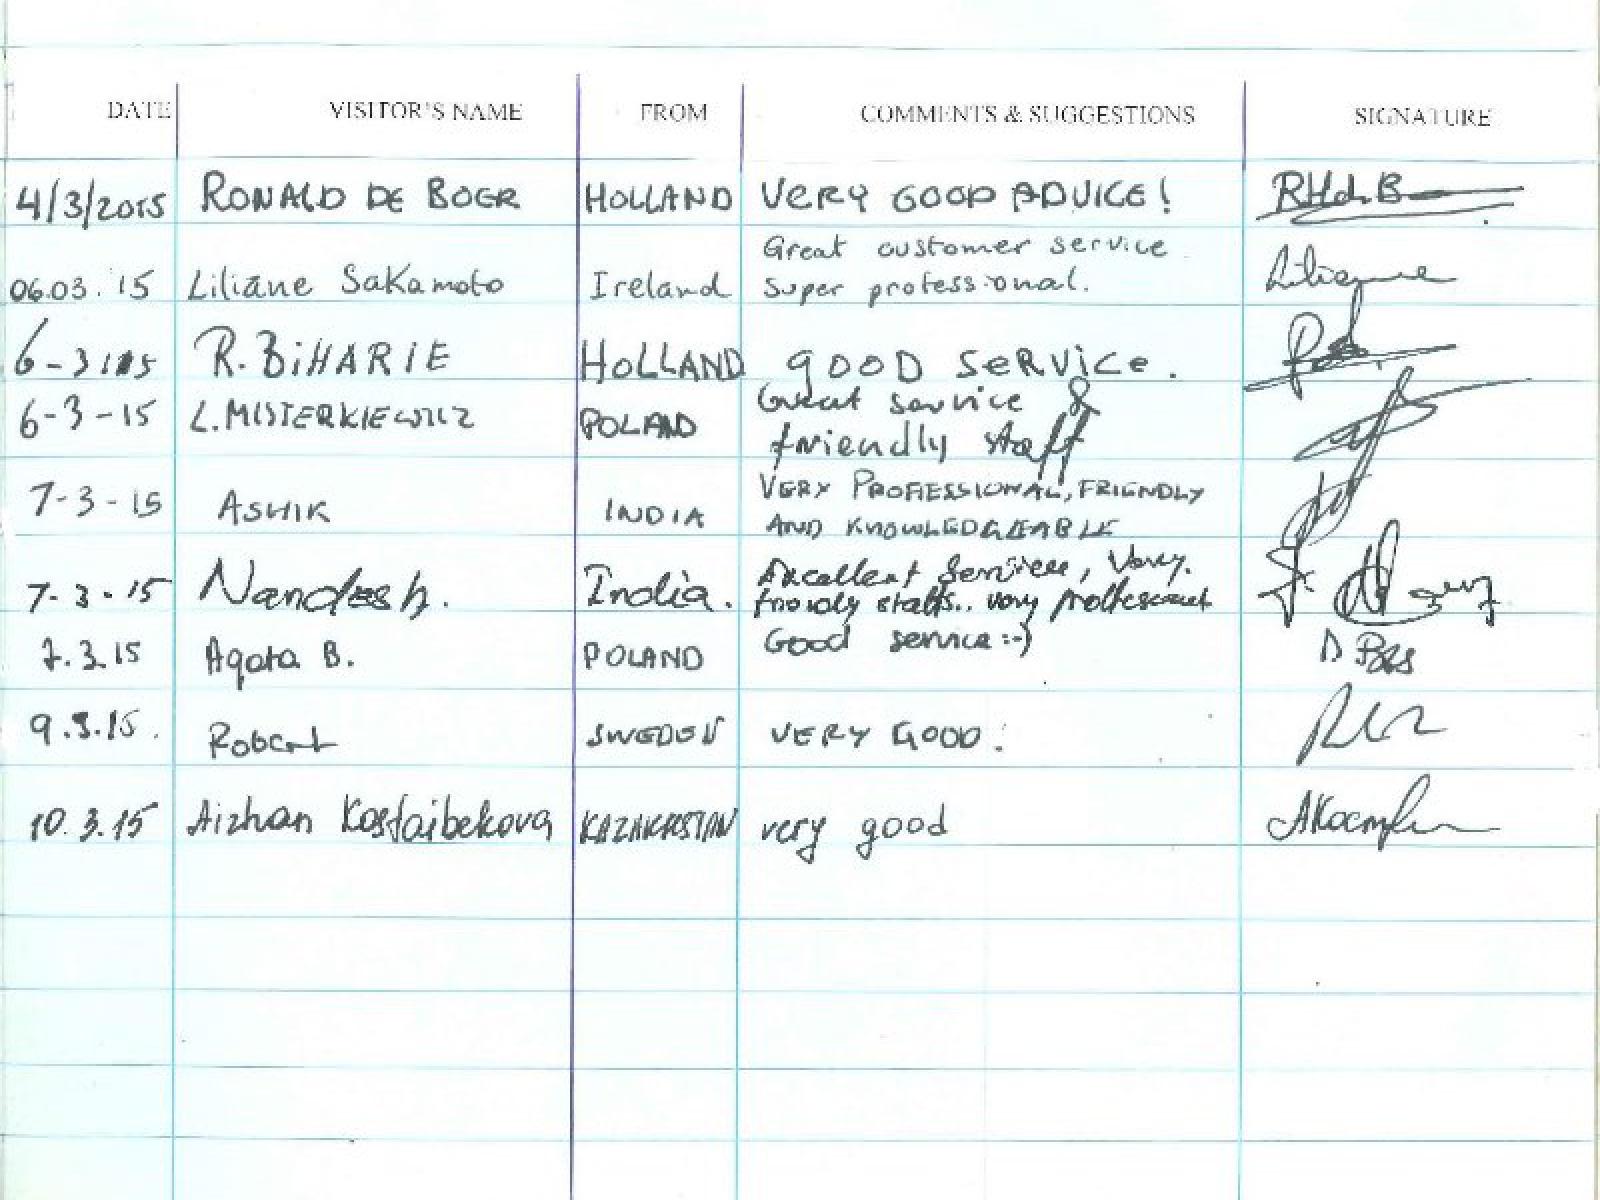 DATE VISITOR'S NAME FROM COMMENTS & SUGGESTIONS SIGNATURE
4/3/2015 RONALD DE BOER HOLLAND VERY GOOD ADVICE! RHd.B
Great customer service
06.03.15 Liliane Sakamoto Ireland super professional. Liliane
6-3-15 R. BiHARIE HOLLAND GOOD SERVICE.
Great service &
6-3-15 L. MISTERKIEWICZ POLAND friendly staff
VERY PROFESSIONAL, FRIENDLY
7-3-15 ASHIK INDIA AND KNOWLEDGEABLE
Excellent Service, Very.
7-3-15 Nandesh. India. friendly staffs.. very
Good service :-)
7.3.15 Agata B. POLAND
9.3.15. Robert SWEDEN VERY GOOD.
10.3.15 Aizhan Kostaibekova KAZAKHSTAN very good